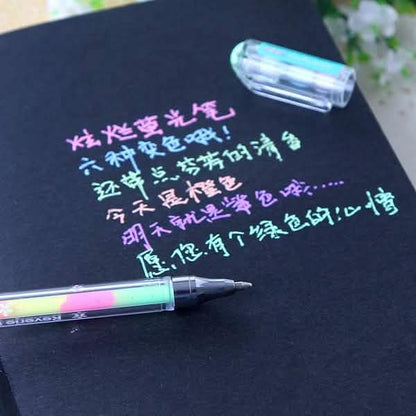 炫烂萤光笔
六种变色哦!
还带点芬芳的清香
今天是橙色
明天就是紫色哦……
愿您有个绿色的心情